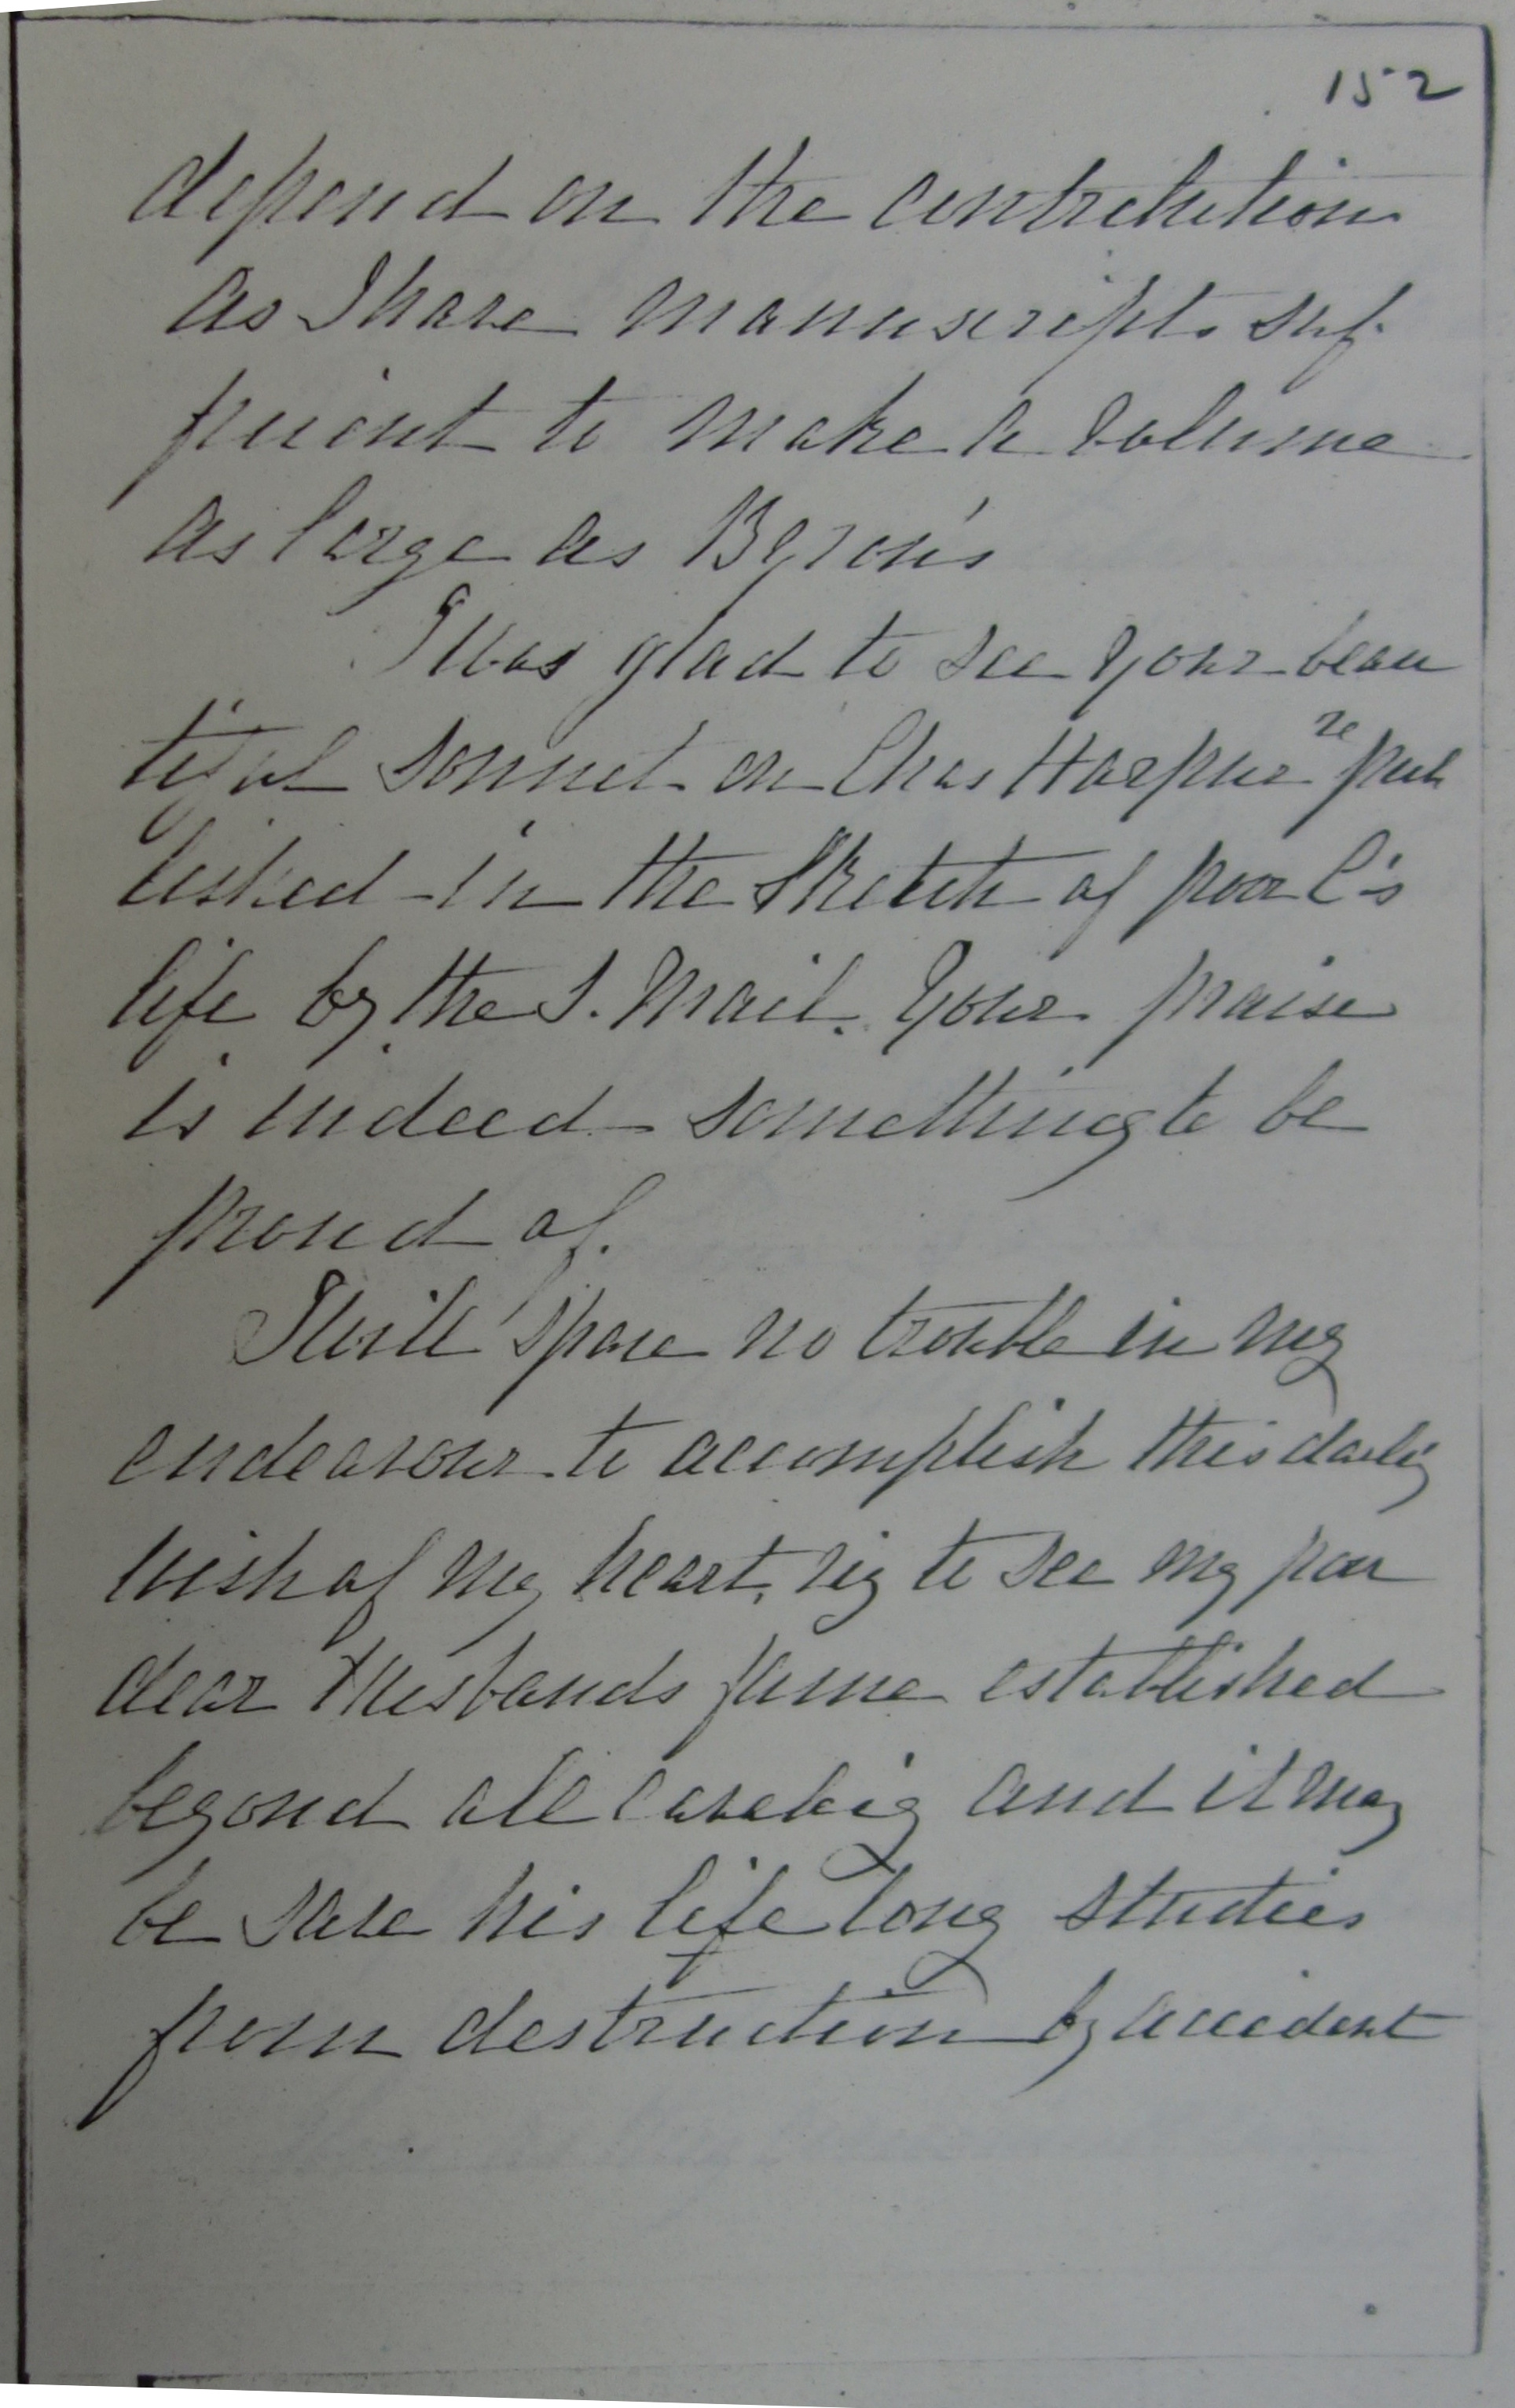 152
depend on the contribution
as I have manuscripts suf-
ficient to make a volume
as large as Byron's
I was glad to see your beau
tiful sonnet on Chas Harpur re pub
lished in the Sketch of poor C's
life by the S. Mail. Your praise
is indeed something to be
proud of.
I will spare no trouble in my
endeavour to accomplish this darling
wish of my heart, viz to see my poor
dear Husbands fame established
beyond all caveling and it may
be save his life long studies
from destruction by accident